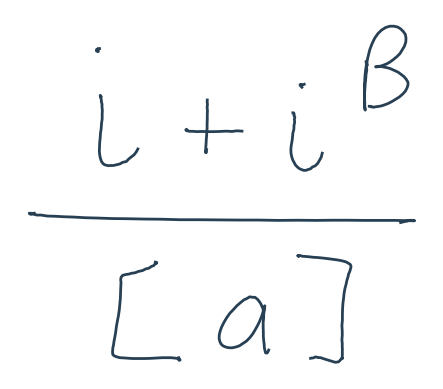 \frac{i + i^{B}}{[a]}